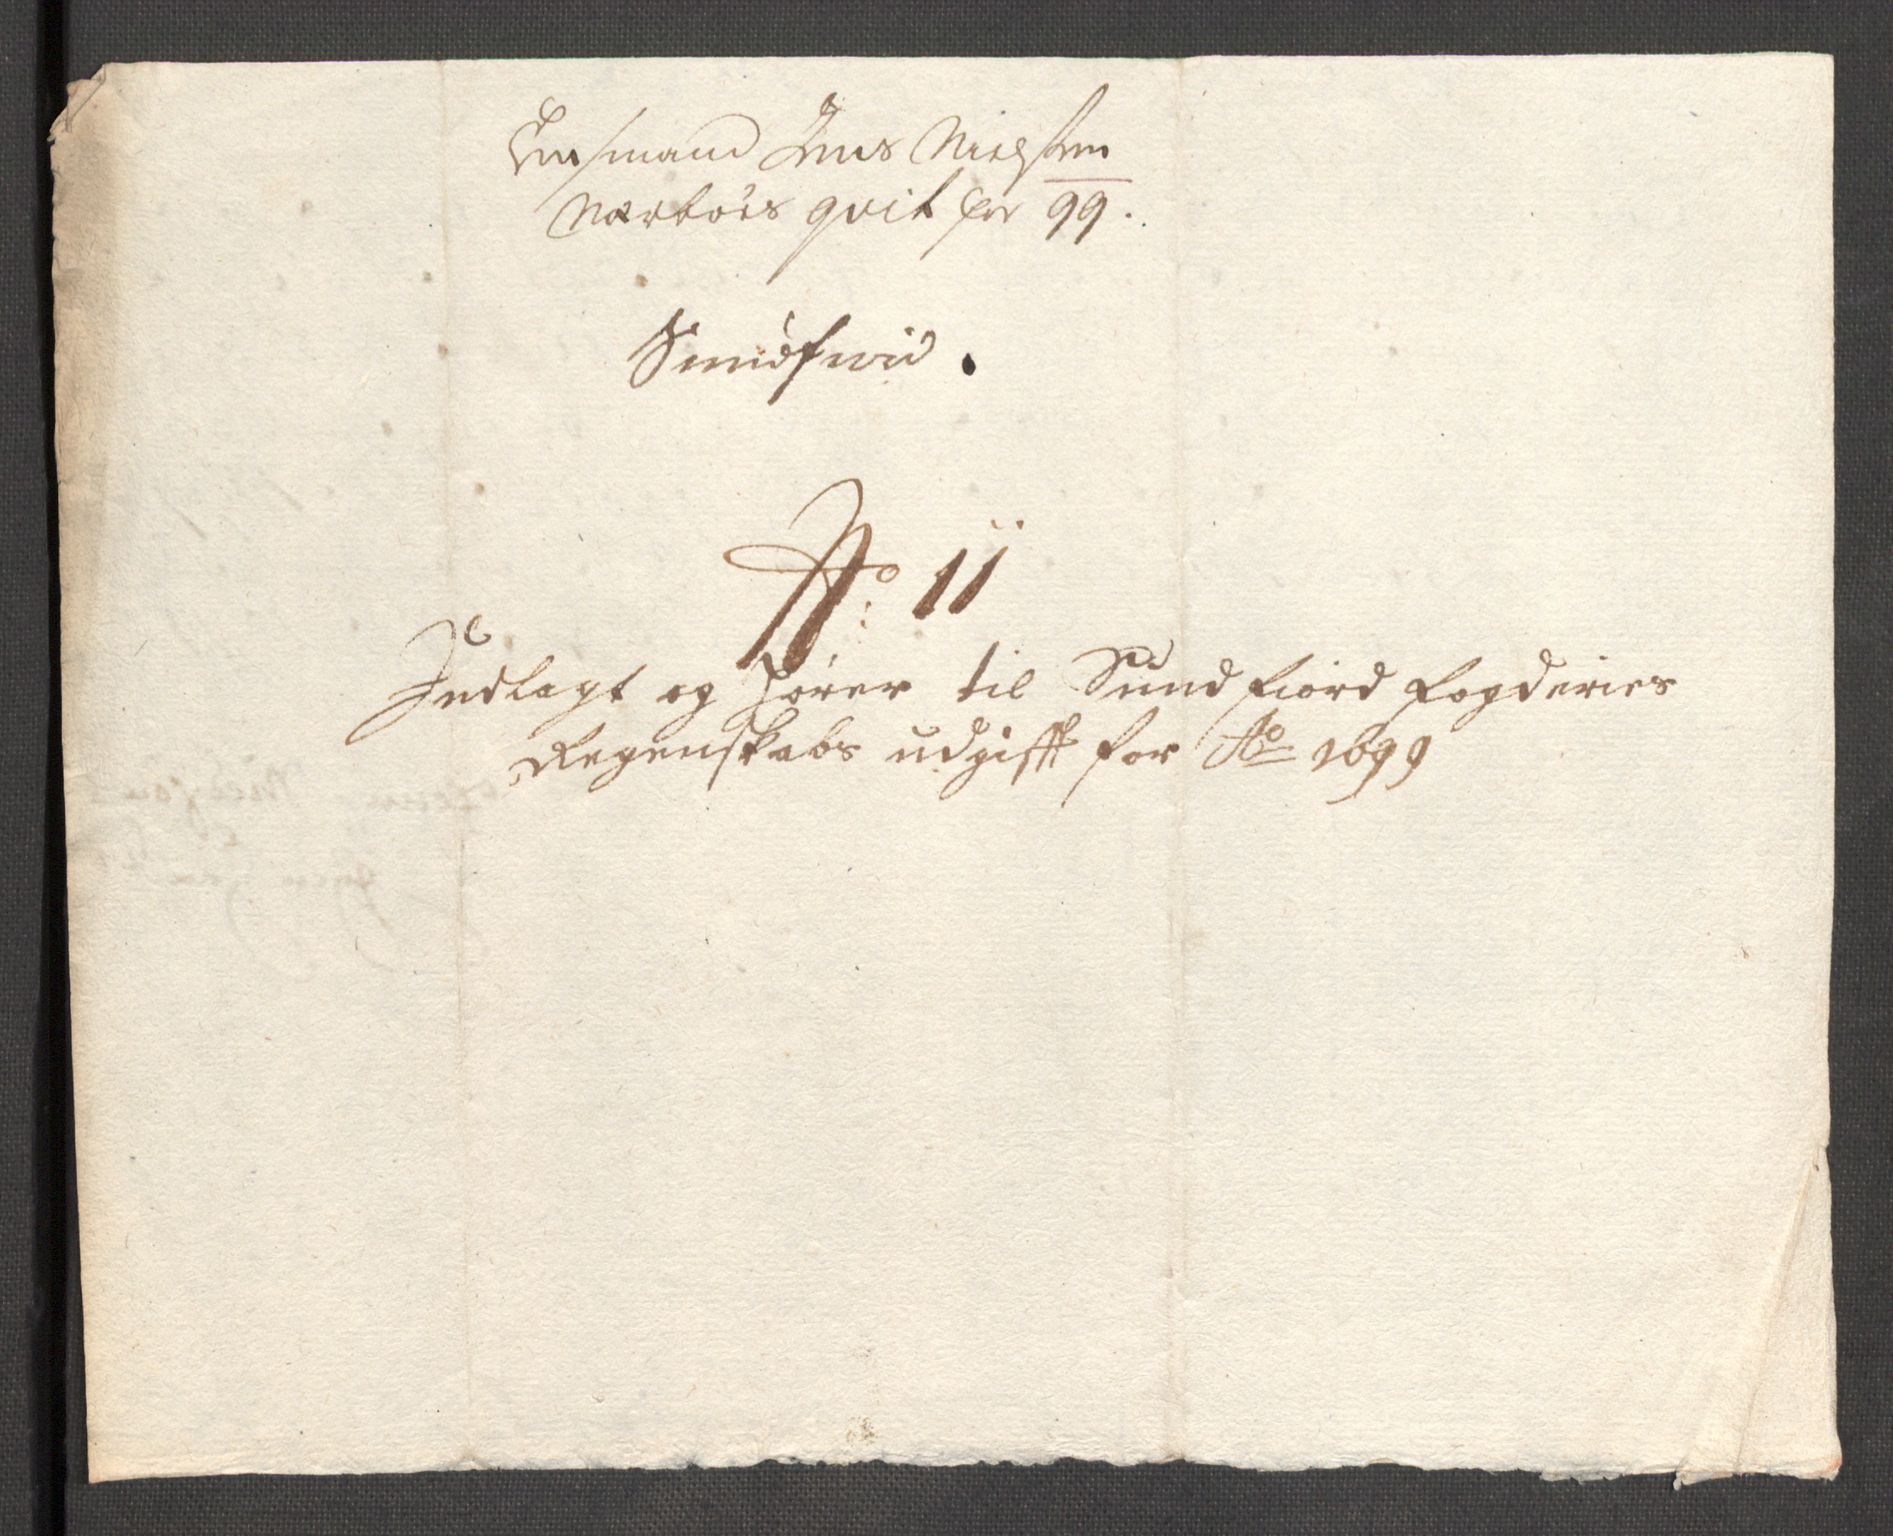 Lensmand Jens Nielsen
Nærbøes qvit for 99.
Sundfiord.
No: 11
Indlagt og hører til Sundfiord fogderies
Regenskabs udgifft for Ao 1699